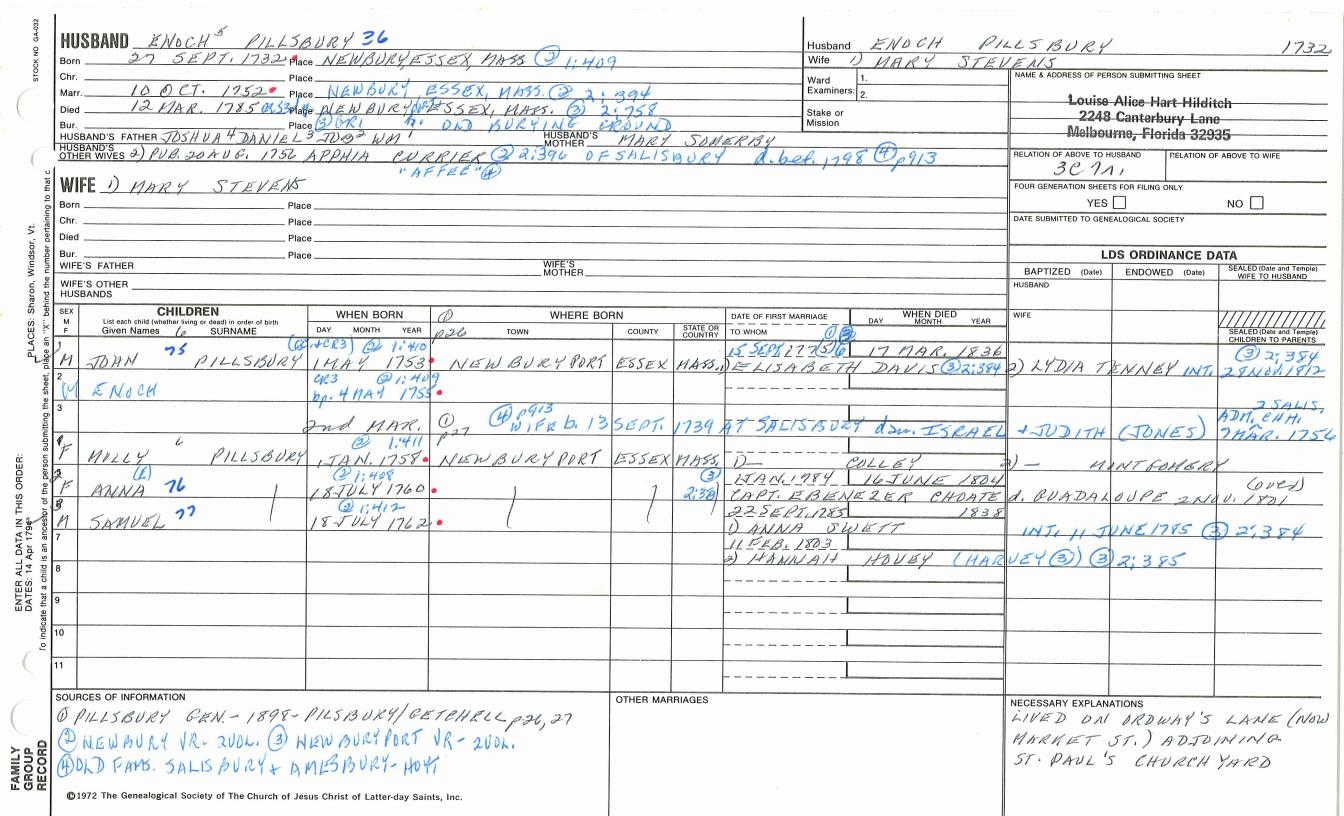 STOCK NO. GA-032
HUSBAND ENOCH 5 PILLSBURY 36
Born 27 SEPT. 1732 Place NEWBURY, ESSEX, MASS ② 1:409
Chr. Place
Marr. 10 OCT. 1752 Place NEWBURY, ESSEX, MASS. ② 2:394
Died 12 MAR. 1785 Place NEWBURY, ESSEX, MASS. ③ 2:758
Bur. Place ③ GR1 OLD BURYING GROUND
HUSBAND'S FATHER JOSHUA 4 DANIEL 3 JOB 2 WM 1 HUSBAND'S MOTHER MARY SOMERBY
HUSBAND'S OTHER WIVES 2) PUB. 20 AUG. 1756 APPHIA CURRIER ② 2:396 OF SALISBURY d. bef. 1798 ④ p913
"AFFEE" ④
Husband ENOCH PILLSBURY 1732
Wife 1) MARY STEVENS
Ward Examiners: 1.
2.
Stake or Mission
NAME & ADDRESS OF PERSON SUBMITTING SHEET
Louise Alice Hart Hilditch
2248 Canterbury Lane
Melbourne, Florida 32935
RELATION OF ABOVE TO HUSBAND RELATION OF ABOVE TO WIFE
FOUR GENERATION SHEETS FOR FILING ONLY
YES NO
DATE SUBMITTED TO GENEALOGICAL SOCIETY
WIFE 1) MARY STEVENS
Born Place
Chr. Place
Died Place
Bur. Place
WIFE'S FATHER WIFE'S MOTHER
WIFE'S OTHER HUSBANDS
LDS ORDINANCE DATA
BAPTIZED (Date) ENDOWED (Date) SEALED (Date and Temple) WIFE TO HUSBAND
HUSBAND
WIFE
SEALED (Date and Temple) CHILDREN TO PARENTS
SEX M F CHILDREN WHEN BORN ① WHERE BORN DATE OF FIRST MARRIAGE WHEN DIED
List each child (whether living or dead) in order of birth
Given Names 6 SURNAME DAY MONTH YEAR p26 TOWN COUNTY STATE OR COUNTRY TO WHOM DAY MONTH YEAR
1 ② 1:410 17 MAR. 1836 ③ 2:384
M JOHN 75 PILLSBURY 1 MAY 1753 NEWBURYPORT ESSEX MASS. 1) ELISABETH DAVIS ③ 2:384 2) LYDIA TENNEY INT. 28 NOV. 1812
2 CR3 ② 1:409
M ENOCH bp. 4 MAY 1755
3 2nd MAR. ① p27 ④ p913 WIFE b. 13 SEPT. 1739 AT SALISBURY dau. ISRAEL + JUDITH (JONES) 2 SALIS. ADM. CHH. 7 MAR. 1756
4 ② 1:411
F MOLLY 6 PILLSBURY 1 JAN. 1758 NEWBURYPORT ESSEX MASS. 1) — COLLEY 2) — MONTGOMERY
(E) ② 1:408 ③ 1 JAN. 1784 16 JUNE 1804 (over)
F ANNA 76 18 JULY 1760 2:38 CAPT. EBENEZER CHOATE d. GUADALOUPE 2 NOV. 1801
② 1:412 22 SEPT. 1785 1838
M SAMUEL 77 18 JULY 1762 1) ANNA SWETT INT. 11 JUNE 1785 ③ 2:384
7 11 FEB. 1803
8 2) HANNAH HOVEY (HARVEY ③) ③ 2:385
9
10
11
SOURCES OF INFORMATION
① PILLSBURY GEN. - 1898 - PILSBURY/GETCHELL p26, 27
② NEWBURY VR - 2 VOL. ③ NEWBURYPORT VR - 2 VOL.
④ OLD FAMS. SALISBURY + AMESBURY - HOYT
OTHER MARRIAGES
NECESSARY EXPLANATIONS
LIVED ON ORDWAY'S LANE (NOW
MARKET ST.) ADJOINING
ST. PAUL'S CHURCH YARD
©1972 The Genealogical Society of The Church of Jesus Christ of Latter-day Saints, Inc.
FAMILY GROUP RECORD
ENTER ALL DATA IN THIS ORDER:
DATES: 14 Apr 1796
PLACES: Sharon, Windsor, Vt.
To indicate that a child is an ancestor of the person submitting the sheet, place an "X" behind the number pertaining to that c